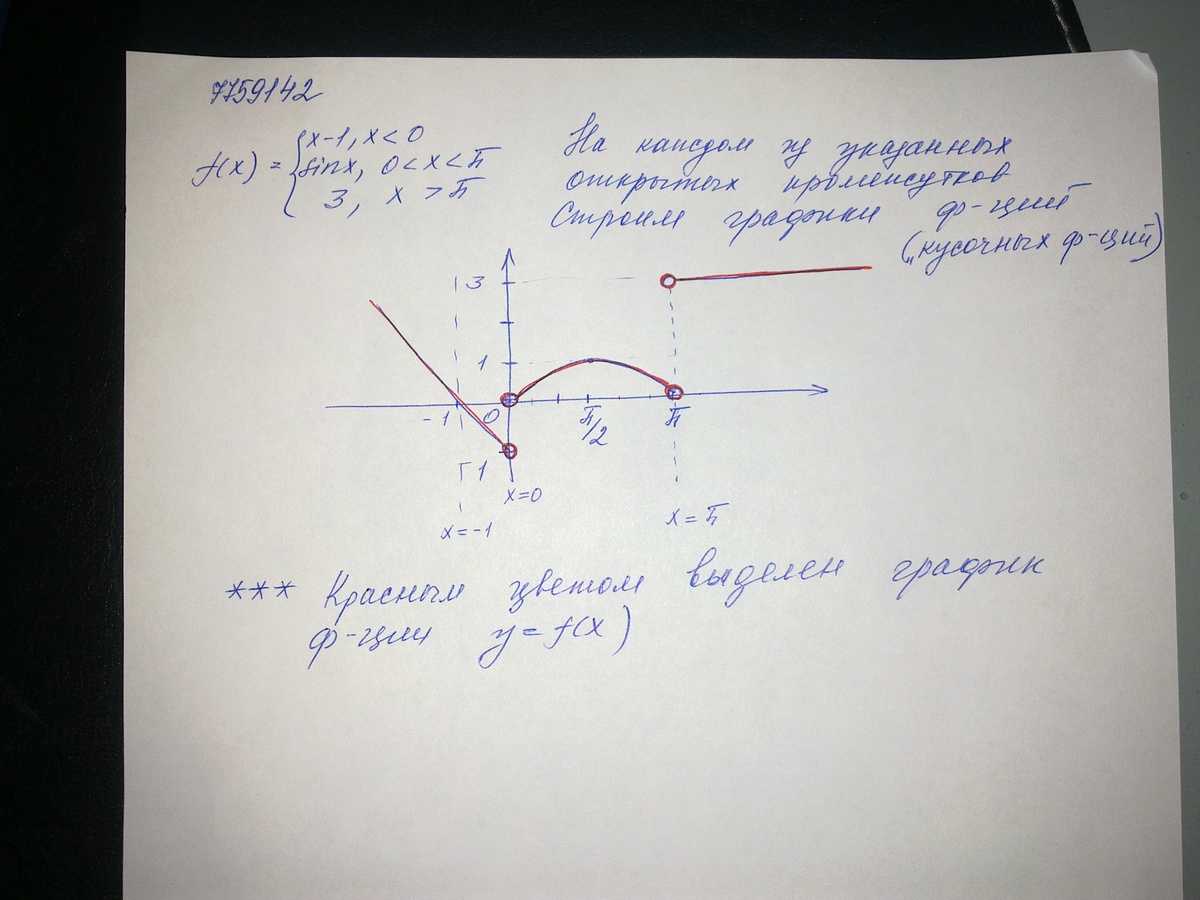 7759142
f(x) = { x-1, x < 0
sinx, 0 < x < π
3, x > π
На каждом из указанных
открытых промежутков
Строим графики ф-ций
("кусочных ф-ций)
3
1
-1
0
π/2
π
-1
x=0
x=-1
x = π
*** Красным цветом выделен график
ф-ции y = f(x)